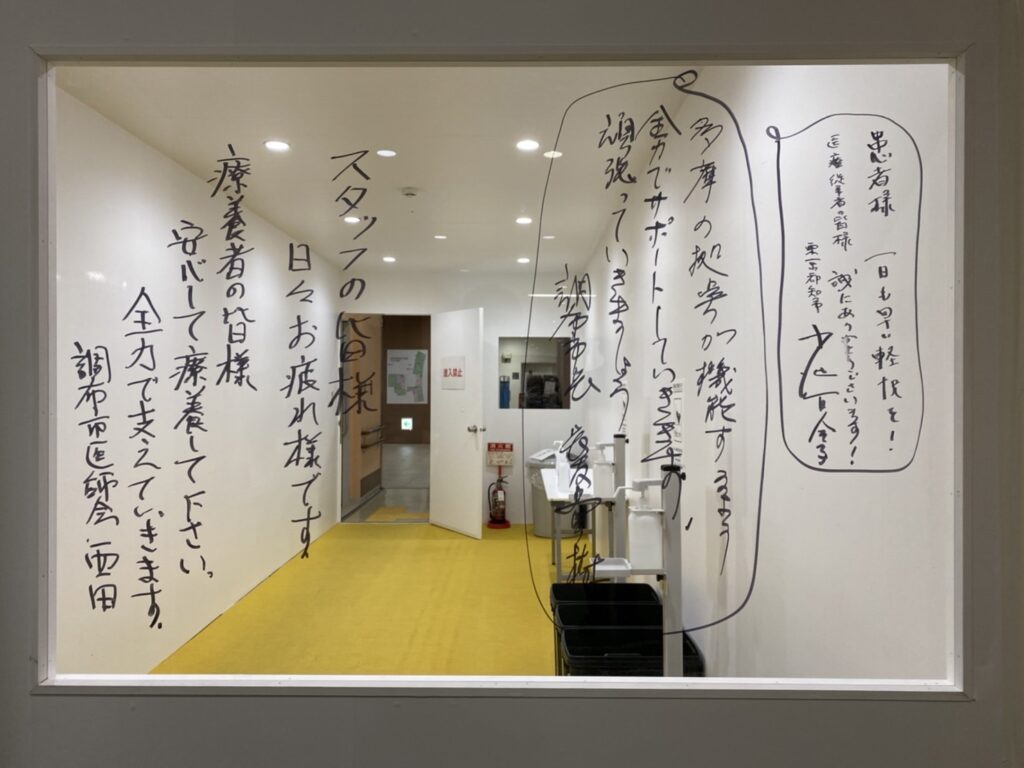 患者様 一日も早い軽快を！
医療従事者の皆様 誠にありがとうございます！
東京都知事 小池百合子
多摩の拠点が機能するよう
全力でサポートしていきます。
頑張っていきましょう。
調布市長 長友貴樹
スタッフの皆様
日々お疲れ様です。
療養者の皆様
安心して療養して下さい。
全力で支えていきます。
調布市医師会 西田
進入禁止
消火器